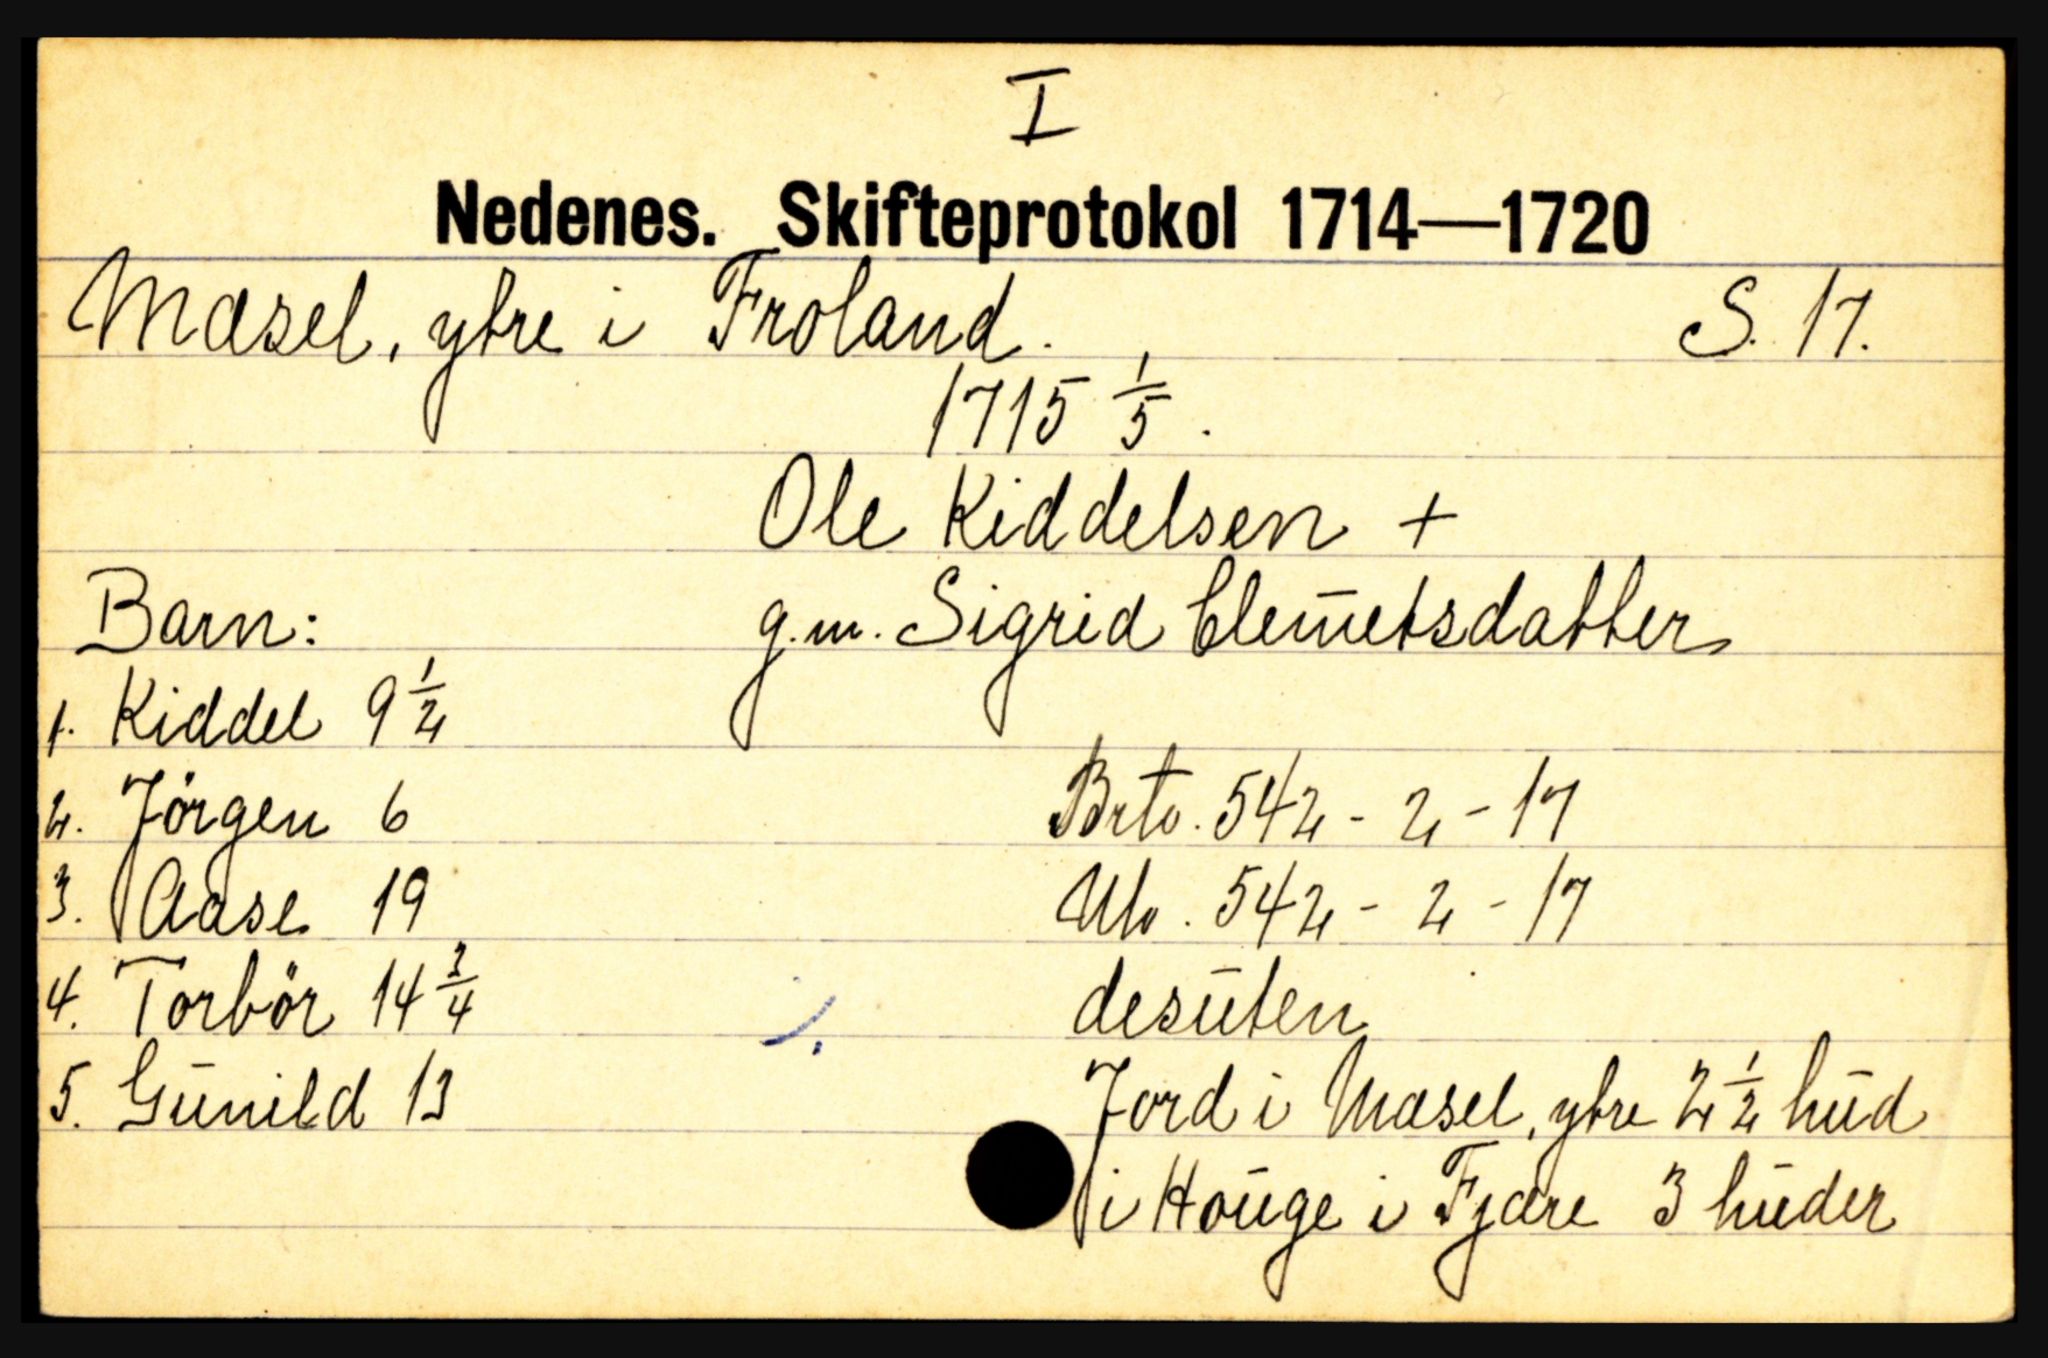 I
Nedenes. Skifteprotokol 1714—1720
Mæsel, ytre i Froland. S. 17.
1715 1/5.
Ole Kiddelsen +
Barn: g.m. Sigrid Clemetsdatter
1. Kiddel 9 1/2
2. Jörgen 6 Brto. 542 - 2 - 17
3. Aase 19 542 - 2 - 17
4. Torbör 14 3/4 desuten
5. Gunild 13 Jord i Mæsel, ytre 2 1/2 hud
i Houge i Fjære 3 huder